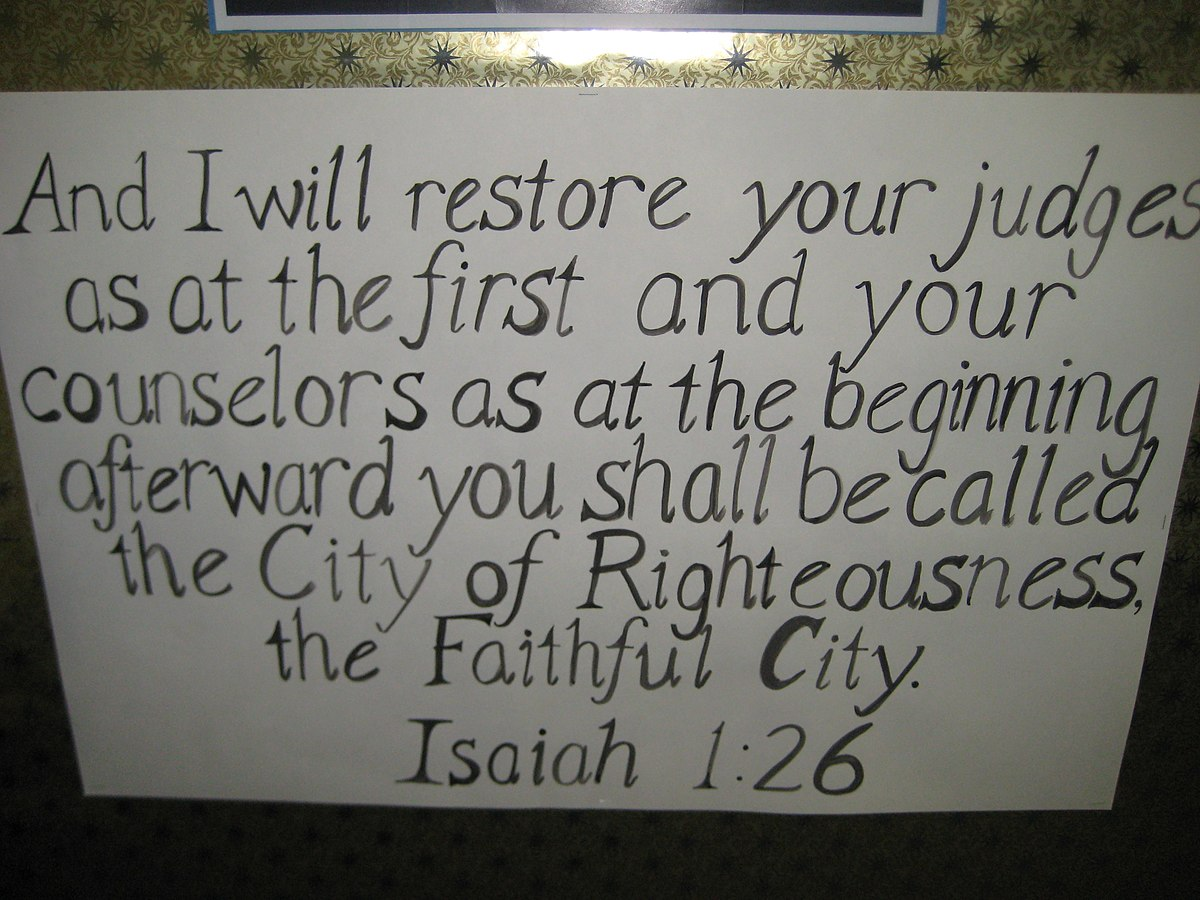 And I will restore your judges
as at the first and your
counselors as at the beginning
afterward you shall be called
the City of Righteousness,
the Faithful City.
Isaiah 1:26